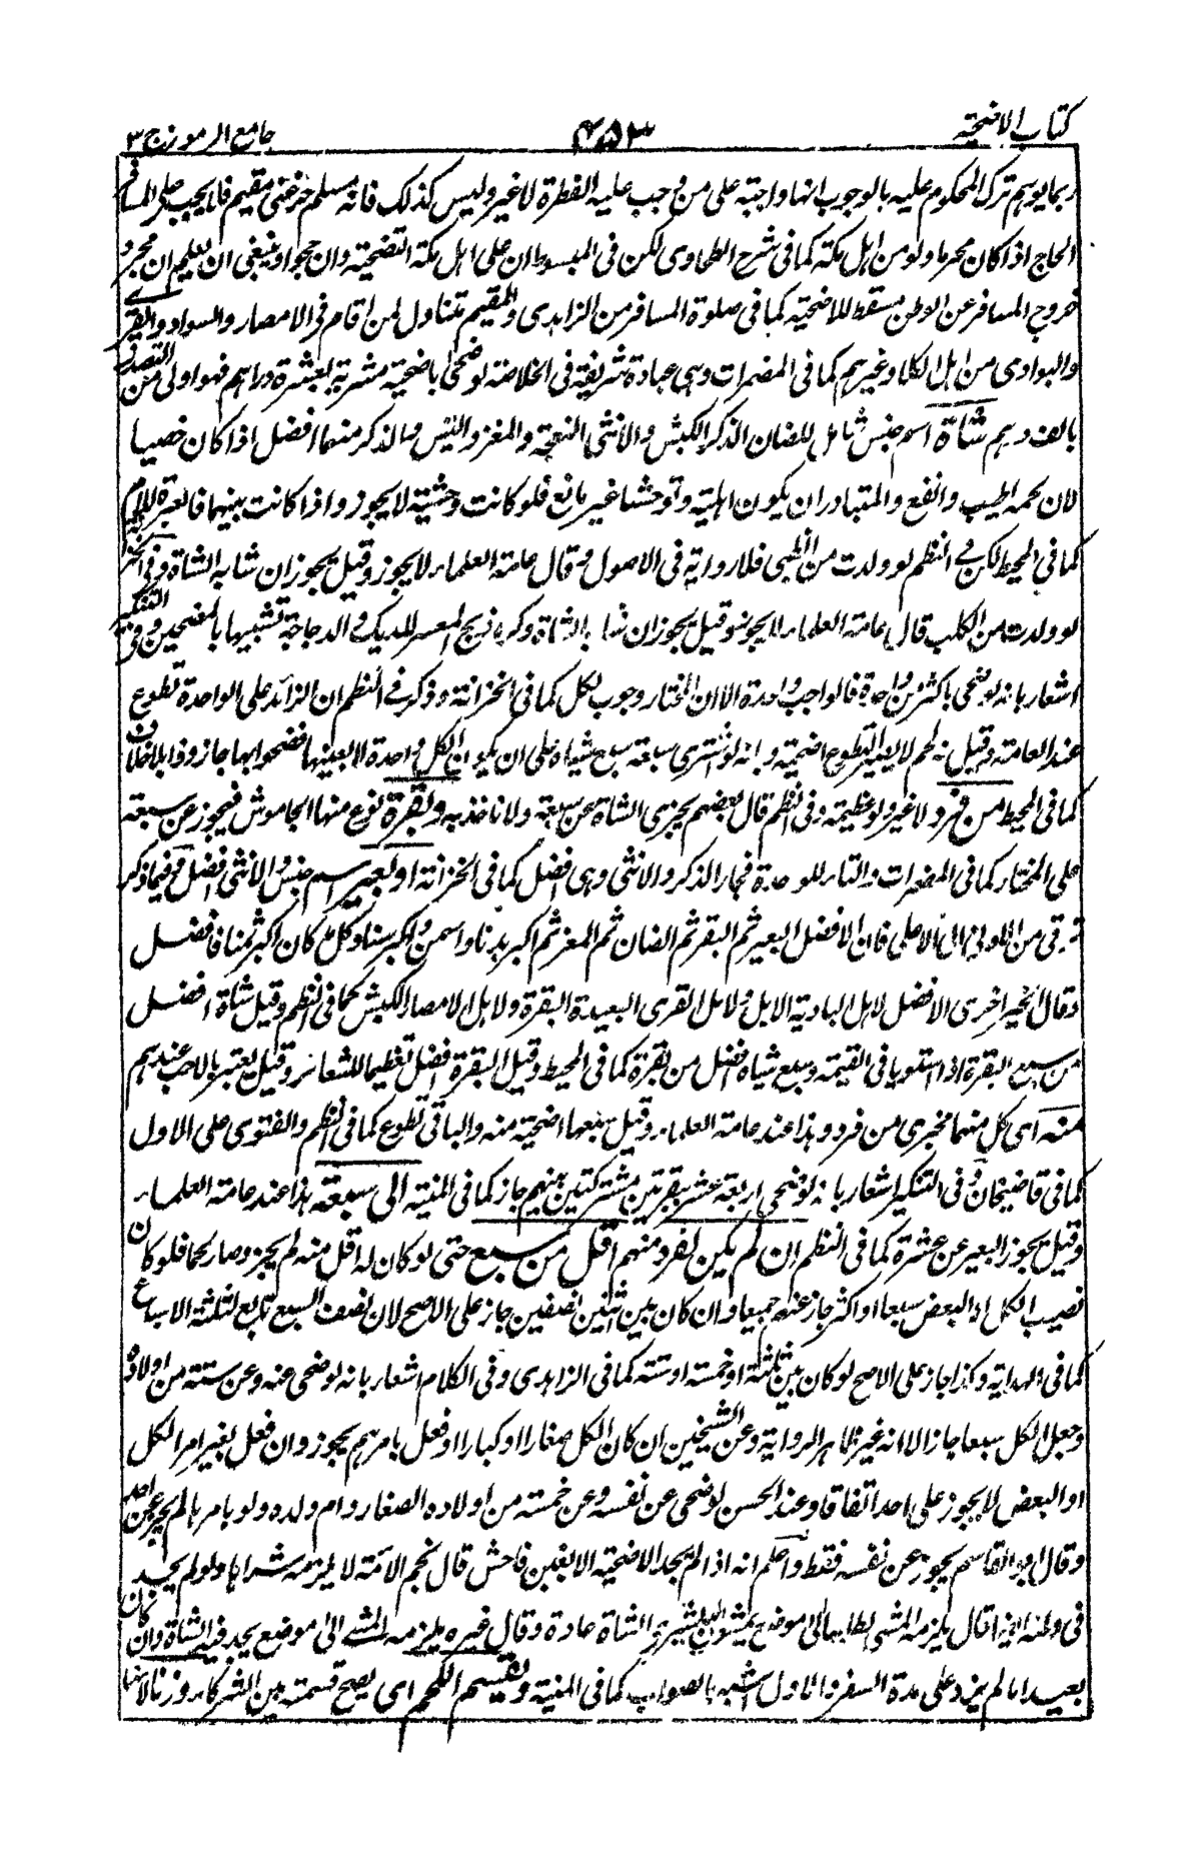 كتاب الاضحية ٤٥٣ جامع الرموز ج ٣
ربما يوهم ترك المحكوم عليه بالوجوب انها واجبة على من وجب عليه الفطرة لا غير وليس كذلك فانه مسلم حر غنى مقيم فلا يجب على المسافر
الحاج اذا كان محرما ولو من اهل مكة كما فى شرح الطحاوى لكن فى المبسوط ان على اهل مكة التضحية وان حجوا وينبغى ان يعلم ان مجرد
خروج المسافر عن الوطن مسقط للاضحية كما فى صلوة المسافر من الزاهدى والمقيم تتناول لمن اقام فى الامصار والسواد والقرى
والبوادى من اهل الكلا وغيرهم كما فى المضمرات وهى عبادة شريفة فى الخلاصة لو ضحى باضحية مشرية بعشرة دراهم فهو اولى من التصدق
بالف درهم شاة اسم جنس شامل للضان الذكر الكبش والانثى النعجة والمعز والتيس والذكر منهما افضل اذا كان خصيا
لان لحمه اطيب وانفع والمتبادر ان يكون اهلية وتوحشها غير مانع فلو كانت وحشية لا يجوز واذا كانت بينهما فالعبرة للام
كما فى المحيط لكن فى النظم لو ولدت من الظبى فلا رواية فى الاصول وقال عامة العلماء لا يجوز وقيل يجوز ان شابه الشاة وفى
لو ولدت من الكلب قال عامة العلماء لا يجوز وقيل يجوز ان شابه الشاة وكره ذبح المعسر للديك والدجاجة تشبيها بالمضحين وفى التنكير
اشعار بانه لو ضحى باكثر من واحدة فالواجب واحدة الا ان المختار وجوب الكل كما فى الخزانة وذكر فى النظم ان الزائد على الواحدة تطوع
عند العامة وقيل انه لحم لا يصير التطوع اضحية وبانه لو اشترى سبعة سبع شياه على ان يكون لكل واحدة لا بعينها فضحوا بها جاز
كما فى المحيط من فرد لا غير ولو عظيمة وفى النظم قال بعضهم يجزى الشاة عن سبعة ولا ناخذ به وبقرة نوع منها الجاموش فيجوز عن سبعة
على المختار كما فى المضمرات والتاء للوحدة فجاز الذكر والانثى وهى افضل كما فى الخزانة او بعير اسم جنس والانثى افضل وفيما ذكر
ترقى من الادنى الى الاعلى فان الافضل البعير ثم البقر ثم الضان ثم المعز ثم اكبر بدنا واسمن واكبر سنا وكل ما كان اكبر ثمنا فافضل
وقال الخيراخرى الافضل لاهل البادية الابل ولاهل القرى البعيدة البقرة ولاهل الامصار الكبش كما فى النظم وقيل شاة افضل
من سبع البقرة اذا استويا فى القيمة وسبع شياه افضل من بقرة كما فى المحيط وقيل البقرة افضل تعظيما للشعائر وقيل يعتبر بالاحب عندهم
منه اى كل منهما مجزى من فرد وهذا عند عامة العلماء وقيل سبعها اضحية منه والباقى تطوع كما فى النظم والفتوى على الاول
كما فى قاضيخان وفى التنكير اشعار بانه لو ضحى اربعة عشر بقرتين مشتركتين بينهم جاز كما فى المنية الى سبعة هذا عند عامة العلماء
وقيل يجوز البعير عن عشرة كما فى النظم ان لم يكن لفرد منهم اقل من سبع حتى لو كان له اقل منه لم يجز وصار لحما فلو كان
نصيب الكل او البعض سبعا او اكثر جاز عنهم جميعا وان كان بين اثنين نصفين جاز على الاصح لان نصف السبع تابع لثلثة الاسباع
كما فى الهداية وكذا جاز على الاصح لو كان بين ثلثة او خمسة او ستة كما فى الزاهدى وفى الكلام اشعار بانه لو ضحى عنه وعن ستة من اولاده
وجعل الكل سبعا جاز الا انه غير ظاهر الرواية وعن الشيخين ان كان الكل صغارا او كبارا او فعل بامرهم يجوز وان فعل بغير امر الكل
او البعض لا يجوز على احد اتفاقا وعند الحسن لو ضحى عن نفسه وعن خمسة من اولاده الصغار وام ولده ولو بامرها لم يجز عن احد
وقال ابو القاسم يجوز عن نفسه فقط واعلم انه اذا لم تجد الاضحية الا بغبن فاحش قال نجم الائمة لا يلزمه شراها ولو لم يجد
فى وطنه قال يلزمه المشى لطلبها الى موضع يمشون اليه لشرى الشاة عادة وقال غيره يلزمه المشى الى موضع يجد فيه الشاة وان كان
بعيدا ما لم يزد على مدة السفر والاول اشبه بالصواب كما فى المنية ويقسم اللحم اى يصح قسمته بين الشركاء وزنا لانها